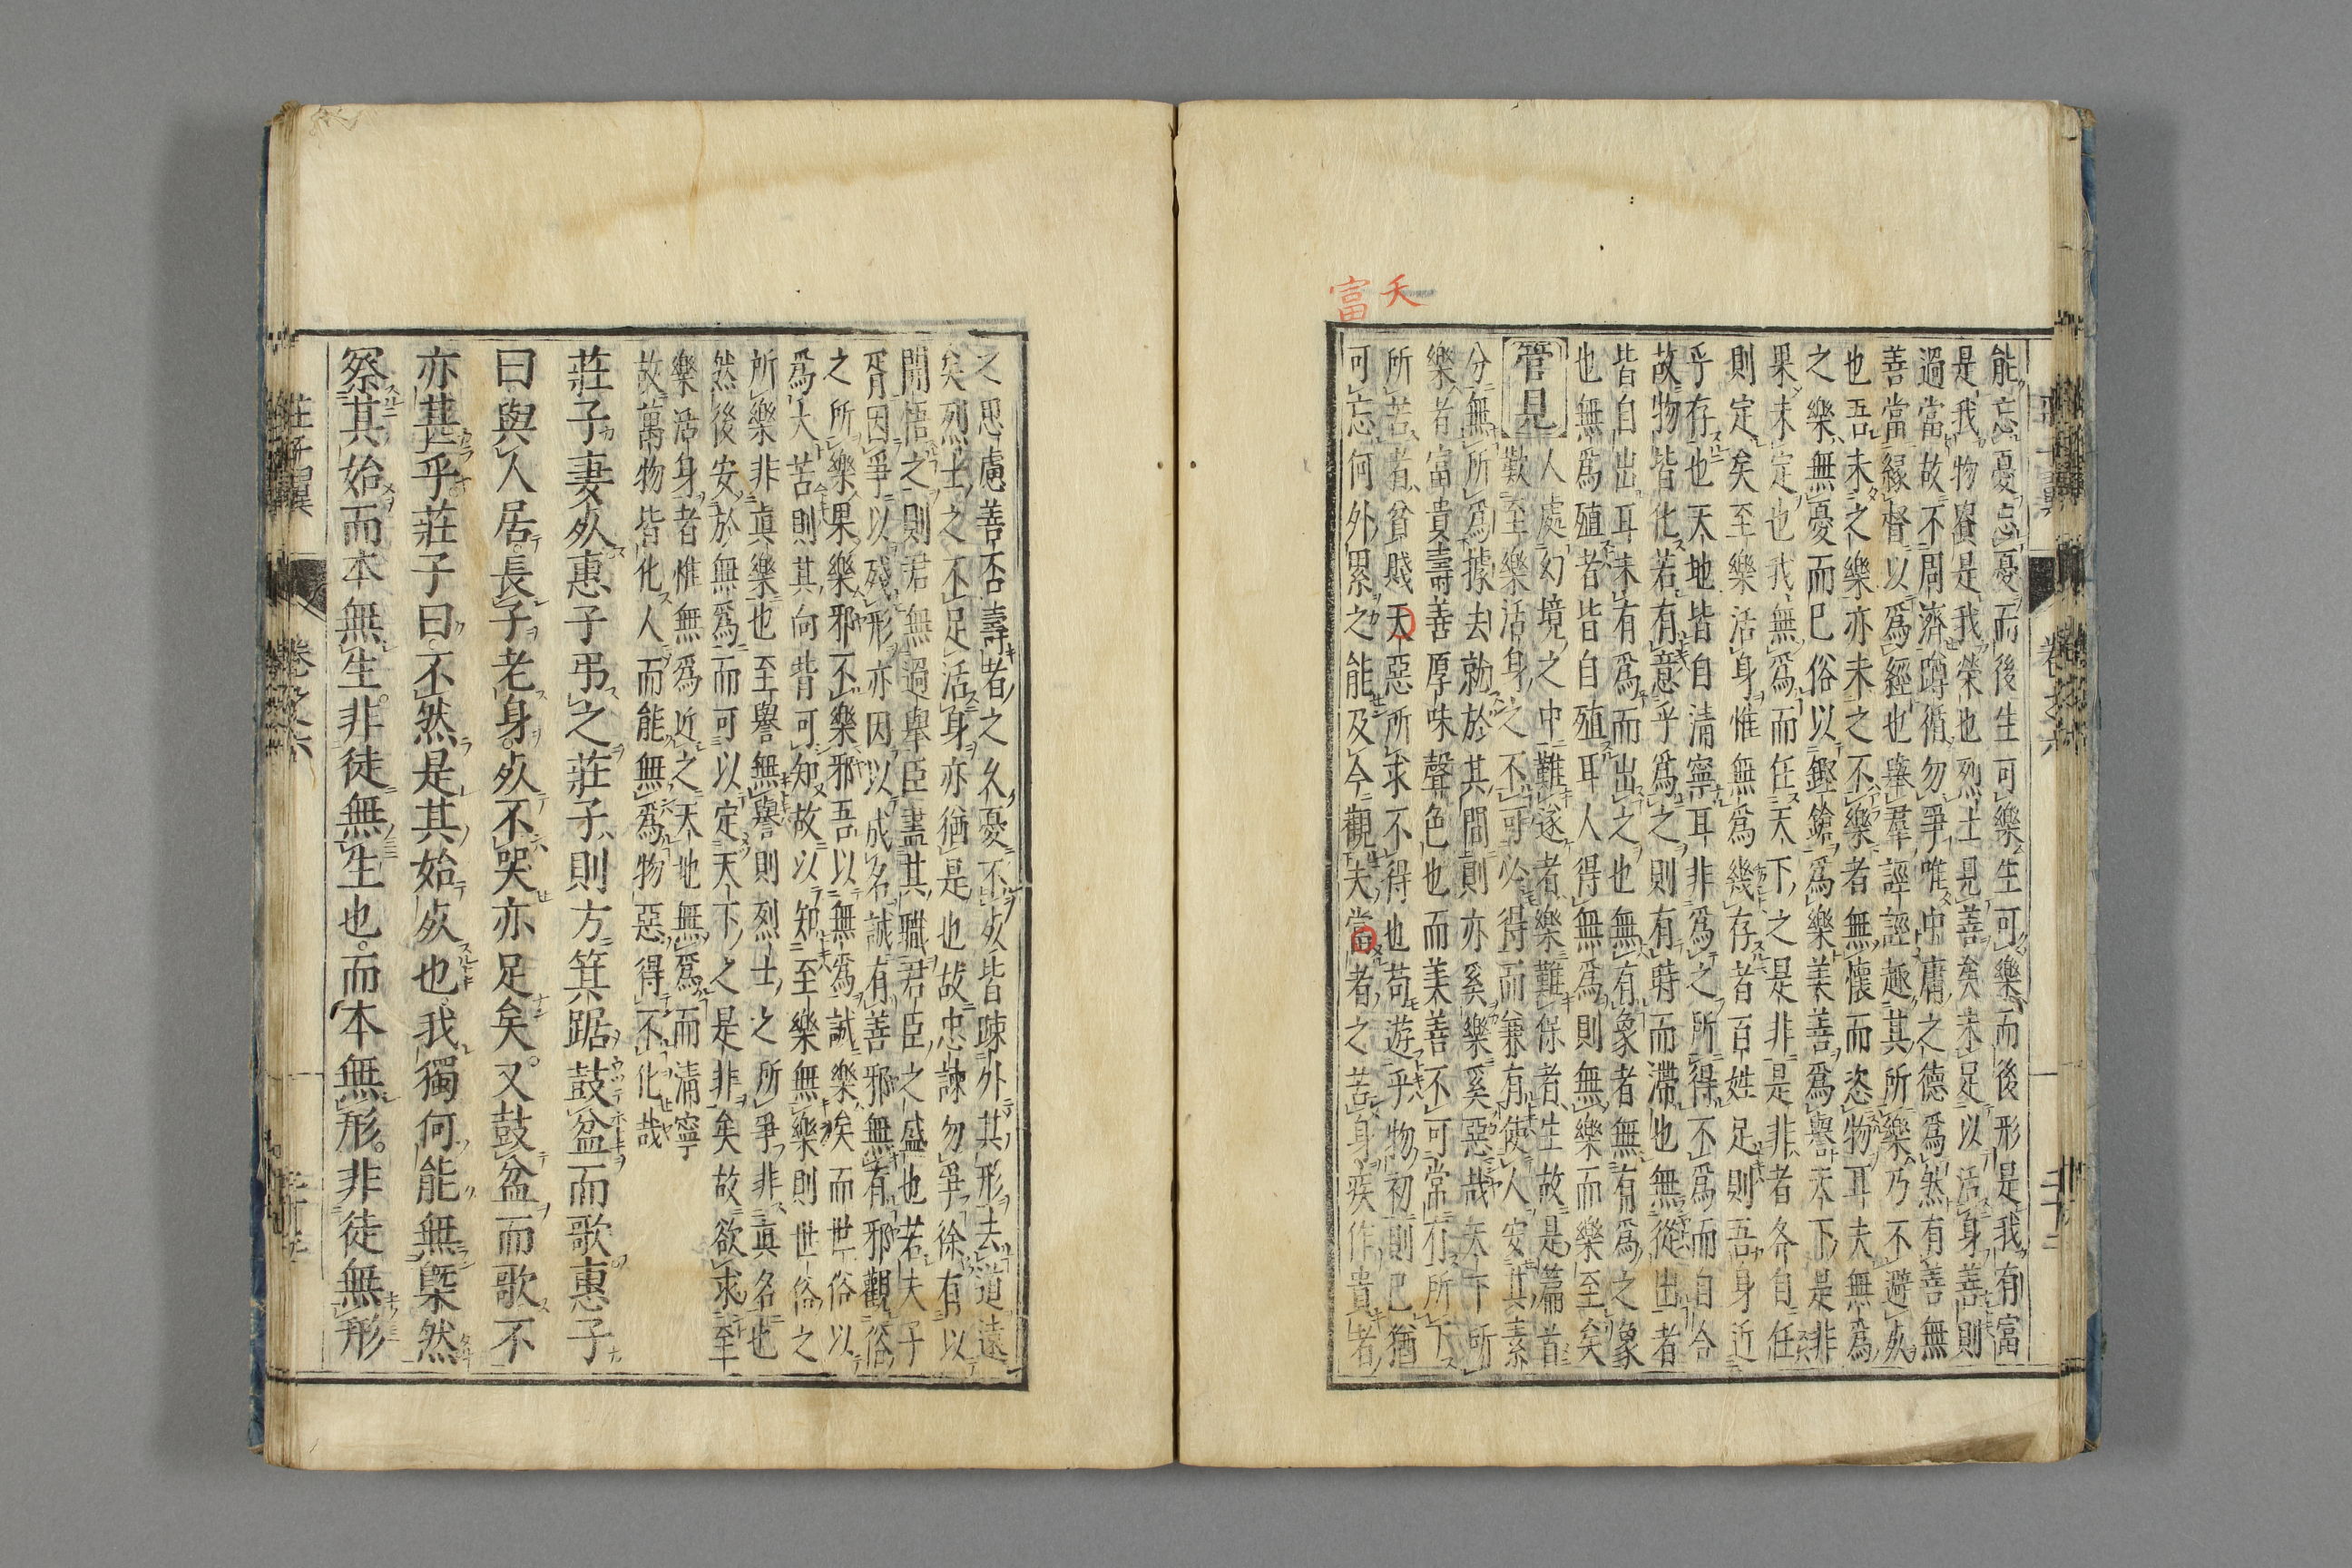 夭
富
能忘憂忘憂而後生可樂生可樂而後形是我有富
是我物貴是我榮也烈士見善矣未足以活身善則
過當故不周濟蹲循勿爭唯中庸之德爲然有善無
善當緣督以爲經也舉羣誙誙趣其所樂乃不避死
也吾未之樂亦未之不樂者無懷而恣物耳夫無爲
之樂無憂而已俗以鏗鎗爲樂美善爲譽天下是非
果未定也我無爲而任天下之是非是非者各自任
則定矣至樂活身惟無爲幾存者百姓足則吾身近
乎存也天地皆自清寧耳非爲之所得不爲而自合
故物皆化若有意乎爲之則有時而滯也無從出者
皆自出耳未有爲而出之也無有象者無有爲之象
也無爲殖者皆自殖耳人得無爲則無樂而樂至矣
管見人處幻境之中難遂者樂難保者生故是篇首
歎至樂活身之不可必得而兼有使人安其素
分無所爲據去就於其間則亦奚樂奚惡哉天下所
樂者富貴壽善厚味聲色也而美善不可常有所下
所苦者貧賤天惡所求不得也苟遊乎物初則已猶
可忘何外累之能及今觀夫當者之苦身疾作貴者
之思慮善否壽者之久憂不死皆疎外其形去道遠
矣烈士之不足活身亦猶是也故忠諫勿爭徐有以
開悟之則君無過舉臣盡其職君臣之盛也若夫子
胥因爭以殘形亦因以成名誠有善邪無有邪觀俗
之所樂果樂邪不樂邪吾以無爲誠樂矣而世俗以
爲大苦則其向背可知故以知至樂無樂則世俗之
所樂非眞樂也至譽無譽則烈士之所爭非眞名也
然後安於無爲而可以定天下之是非矣故欲求至
樂活身者惟無爲近之天地無爲而清寧
故萬物皆化人而能無爲物惡得不化哉
莊子妻死惠子弔之莊子則方箕踞鼓盆而歌惠子
曰與人居長子老身死不哭亦足矣又鼓盆而歌不
亦甚乎莊子曰不然是其始死也我獨何能無槩然
祭其始而本無生非徒無生也而本無形非徒無形
莊子翼
卷之六